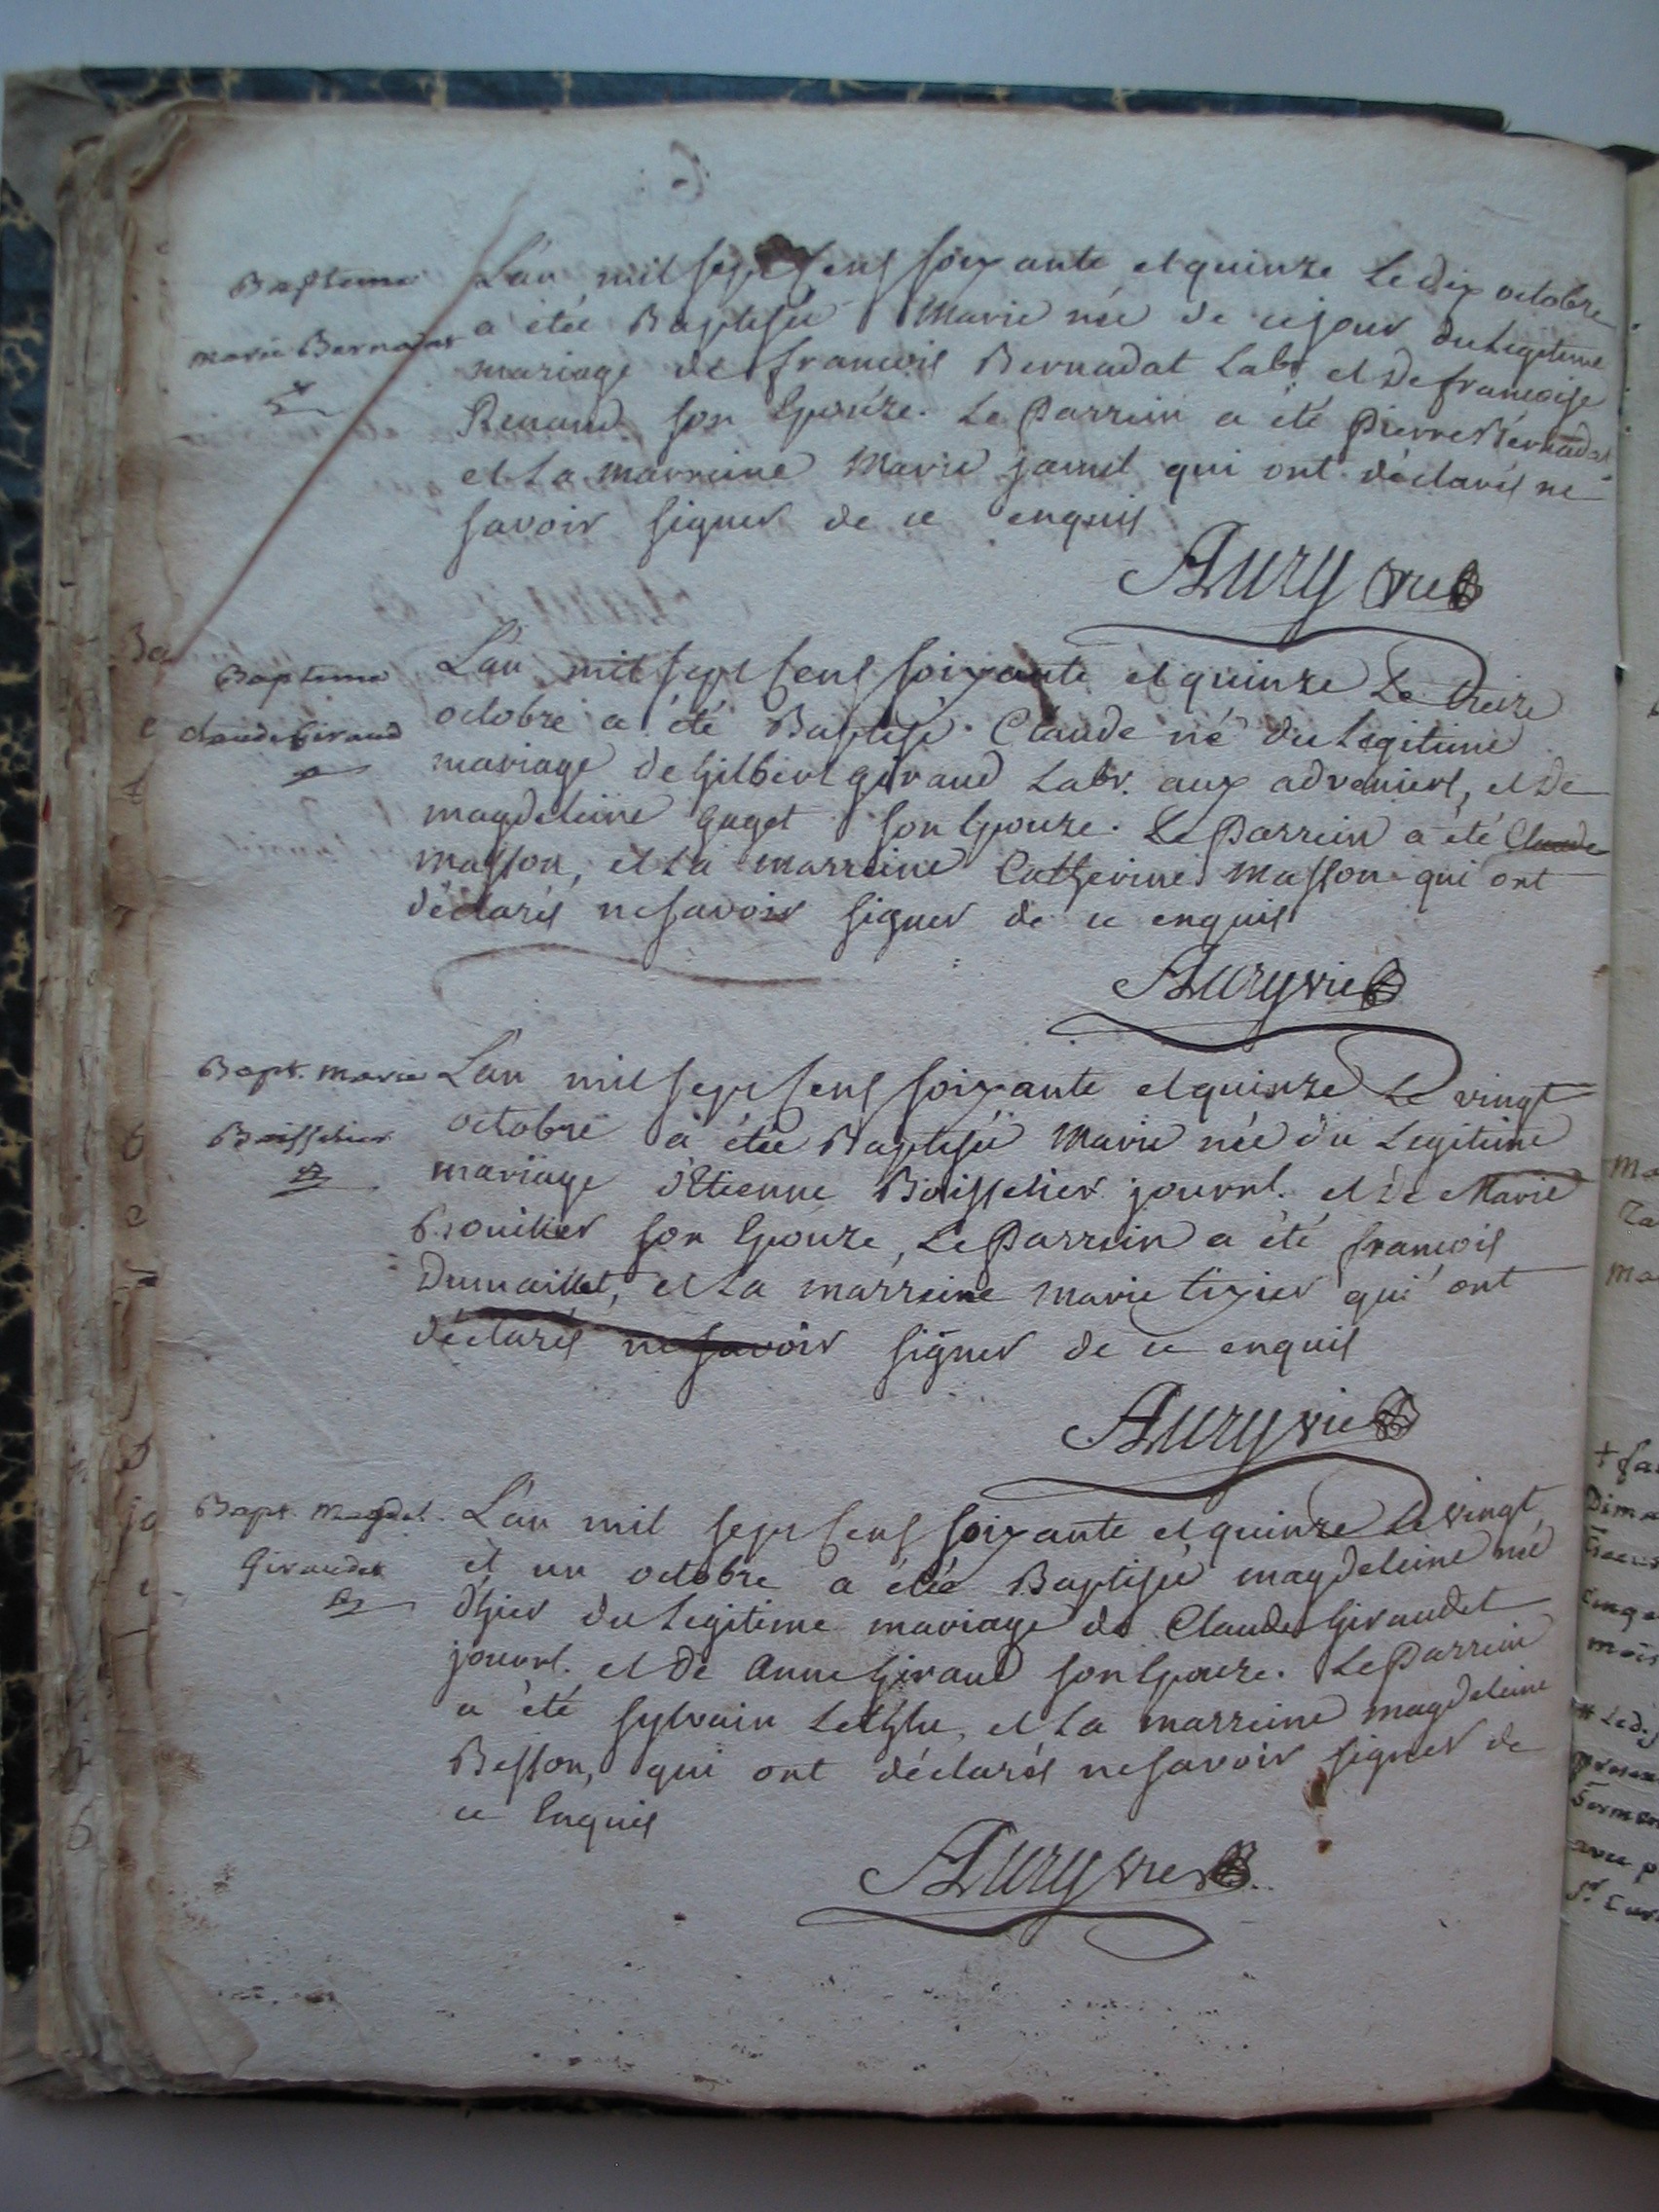 Bapteme
marie Bernadat
L'an mil sept cens soixante et quinze Le dix octobre
a étée Baptisée Marie née de ce jour du Legitime
mariage de françois Bernadat Labr. et de françoise
Renaud son Epouze. Le Parrein a été Pierre Bernadat
et La marreine Marie jamet qui ont déclarés ne
savoir signer de ce enquis
Aury vic
Bapteme
claude Giraud
L'an mil sept cens soixante et quinze Le treize
octobre a été Baptisé Claude né du Legitime
mariage de Gilbert giraud Labr. aux adveniers, et de
magdeleine gaget son Epouze. Le Parrein a été Claude
Masson, et La marreine Catherine Masson qui ont
déclarés ne savoir signer de ce enquis
Aury vic
Bapt. marie
Boisselier
L'an mil sept cens soixante et quinze Le vingt
octobre a étée Baptisée Marie née du Legitime
mariage d'Etienne Boisselier journl. et de Marie
son Epouze, Le Parrein a été françois
Dumaillet, et La marreine marie tixier qui ont
déclarés ne savoir signer de ce enquis
Aury vic
Bapt. Magdel.
Giraudet
L'an mil sept cens soixante et quinze Le vingt
et un octobre a étée Baptisée magdeleine née
d'hier du Legitime mariage de Claude Giraudet
journl. et de Anne Giraud son Epouze. Le Parrein
a été Sylvain et La marreine magdeleine
Besson, qui ont déclarés ne savoir signer de
ce Enquis
Aury vic